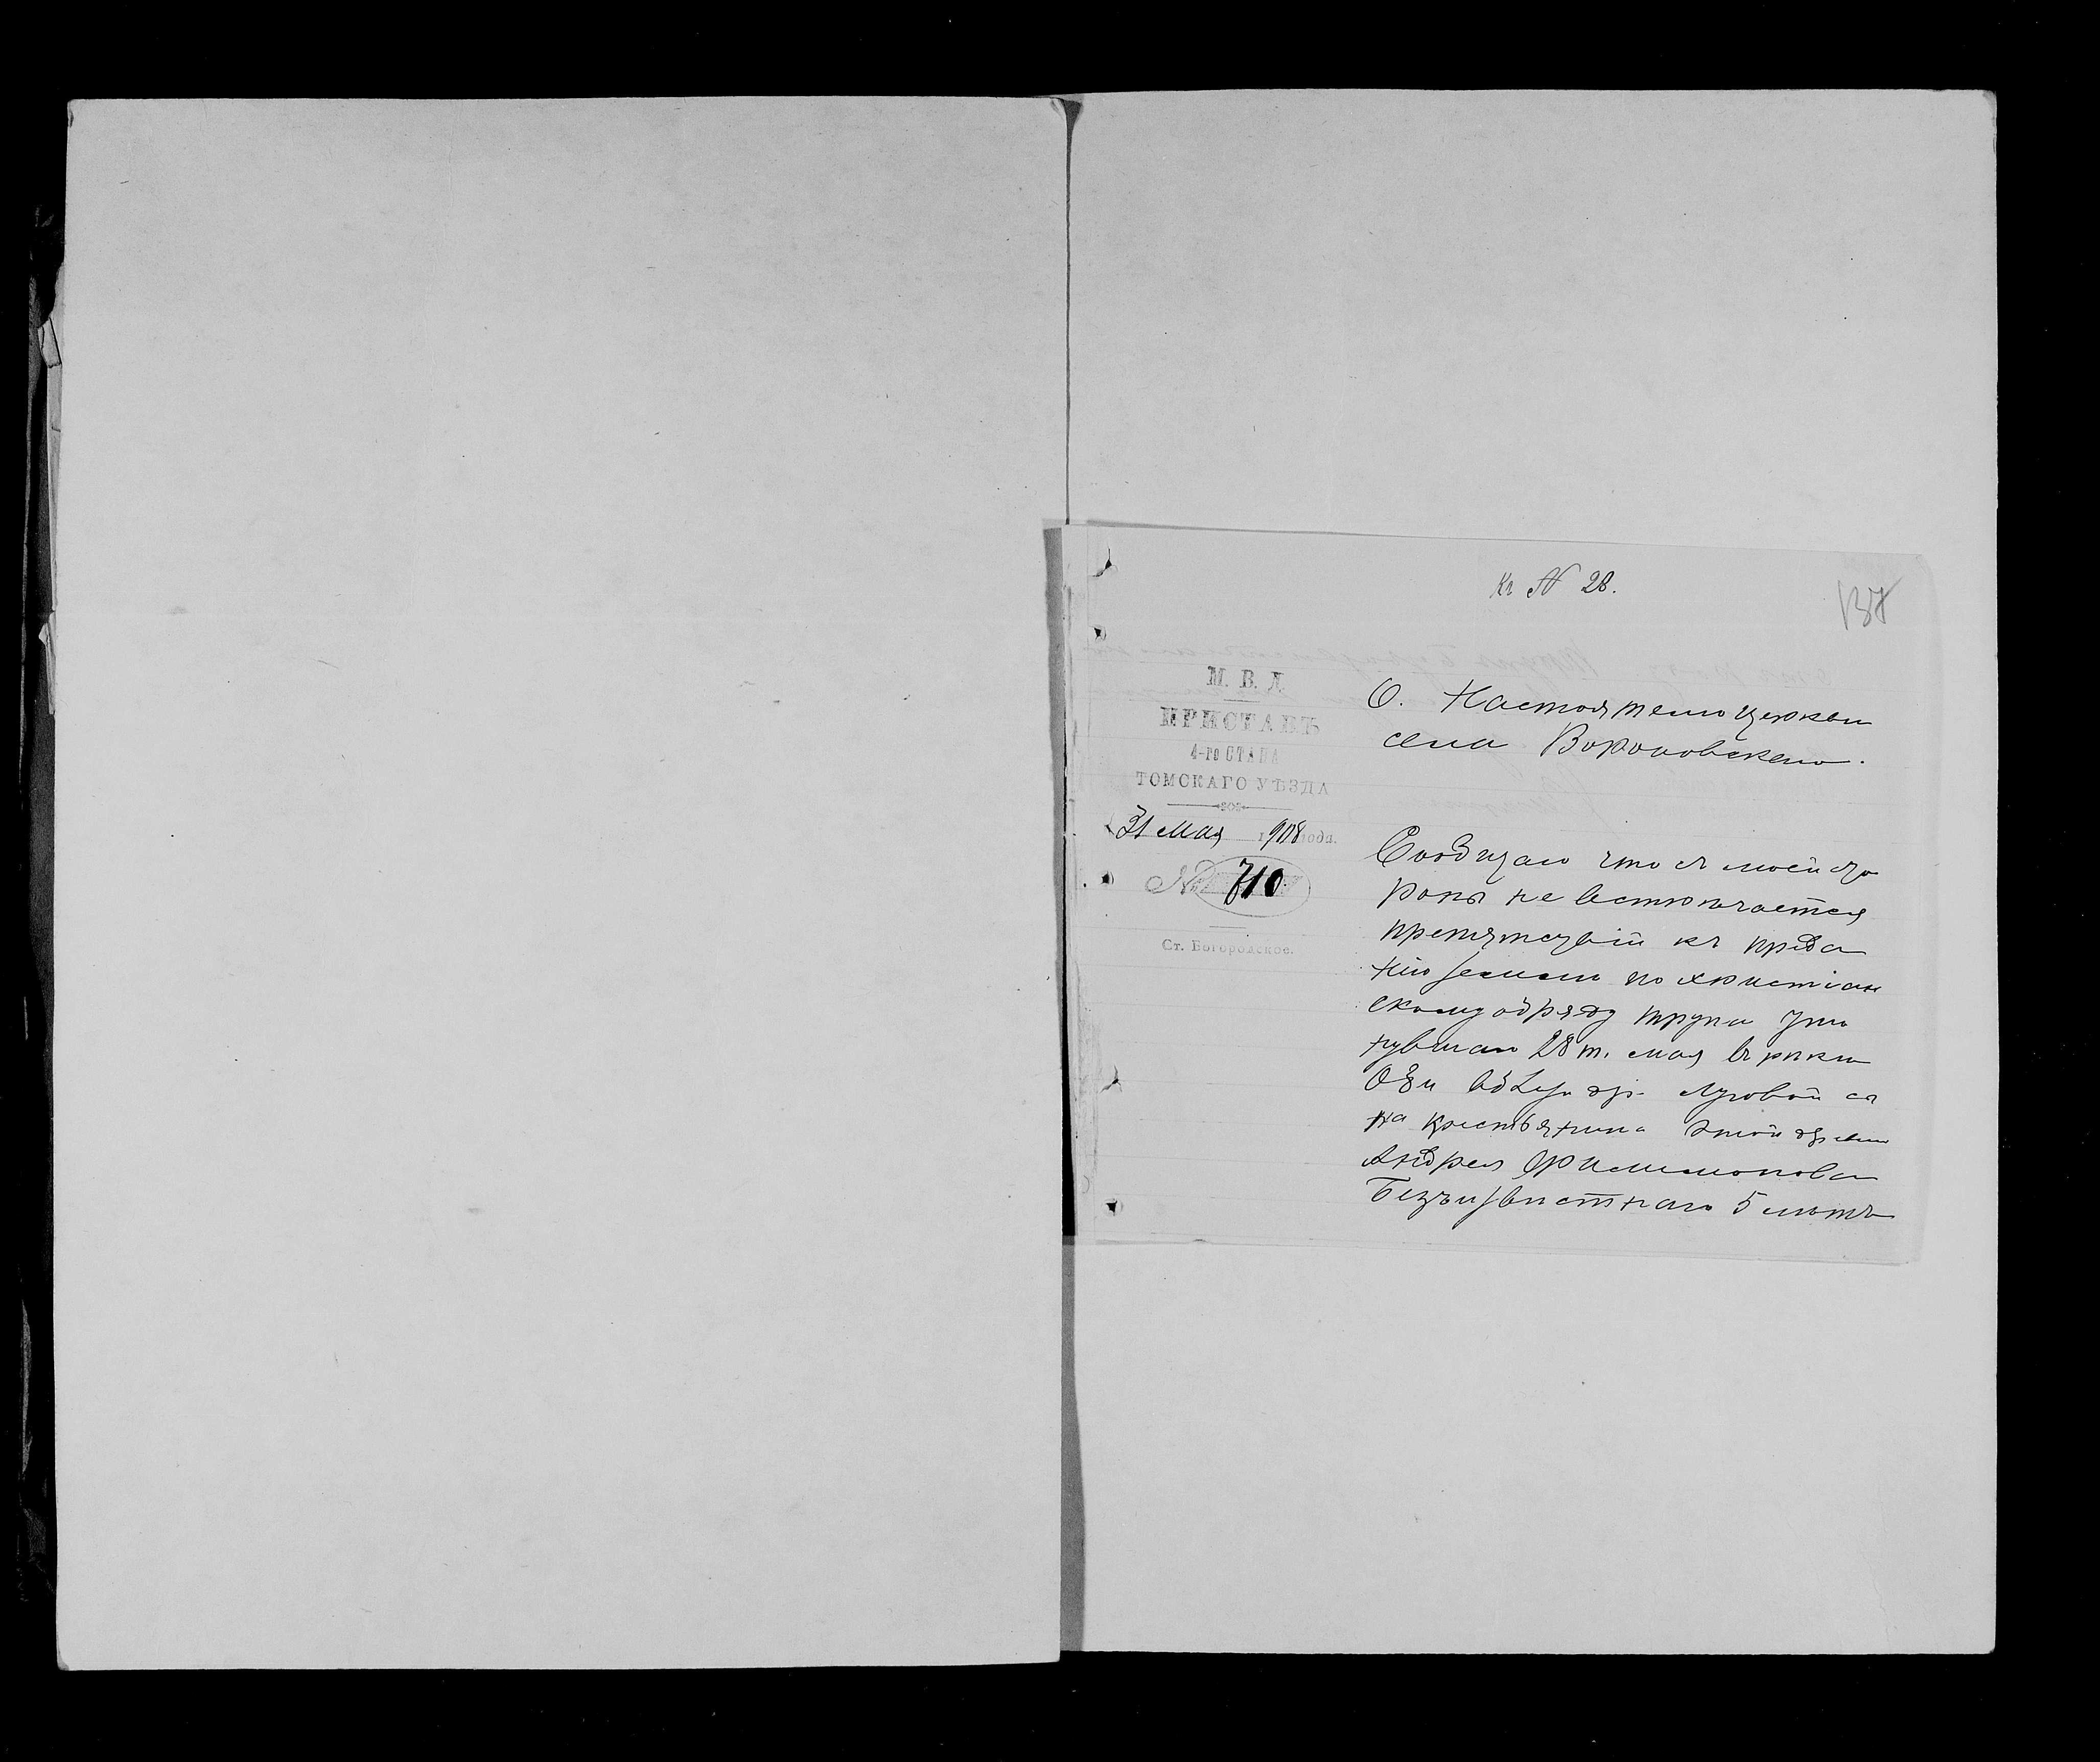 Къ № 28.
137
М. В. Д.
ПРИСТАВЪ
4-го СТАНА
ТОМСКАГО УѢЗДА
31 Мая 1908 года.
№ 710
Ст. Богородское.
О. Настоятелю церкви
села Вороновскаго.
Сообщаю что съ моей сто
роны не встречается
препятствій къ преда
нію земли по христіан
скому обряду трупа уто
нувшаго 28 т. мая въ реки
Оби близъ дер. Луговой сы
на крестьянина этой деревни
Андрея Филимонова
Безъизвестнаго 5 летъ